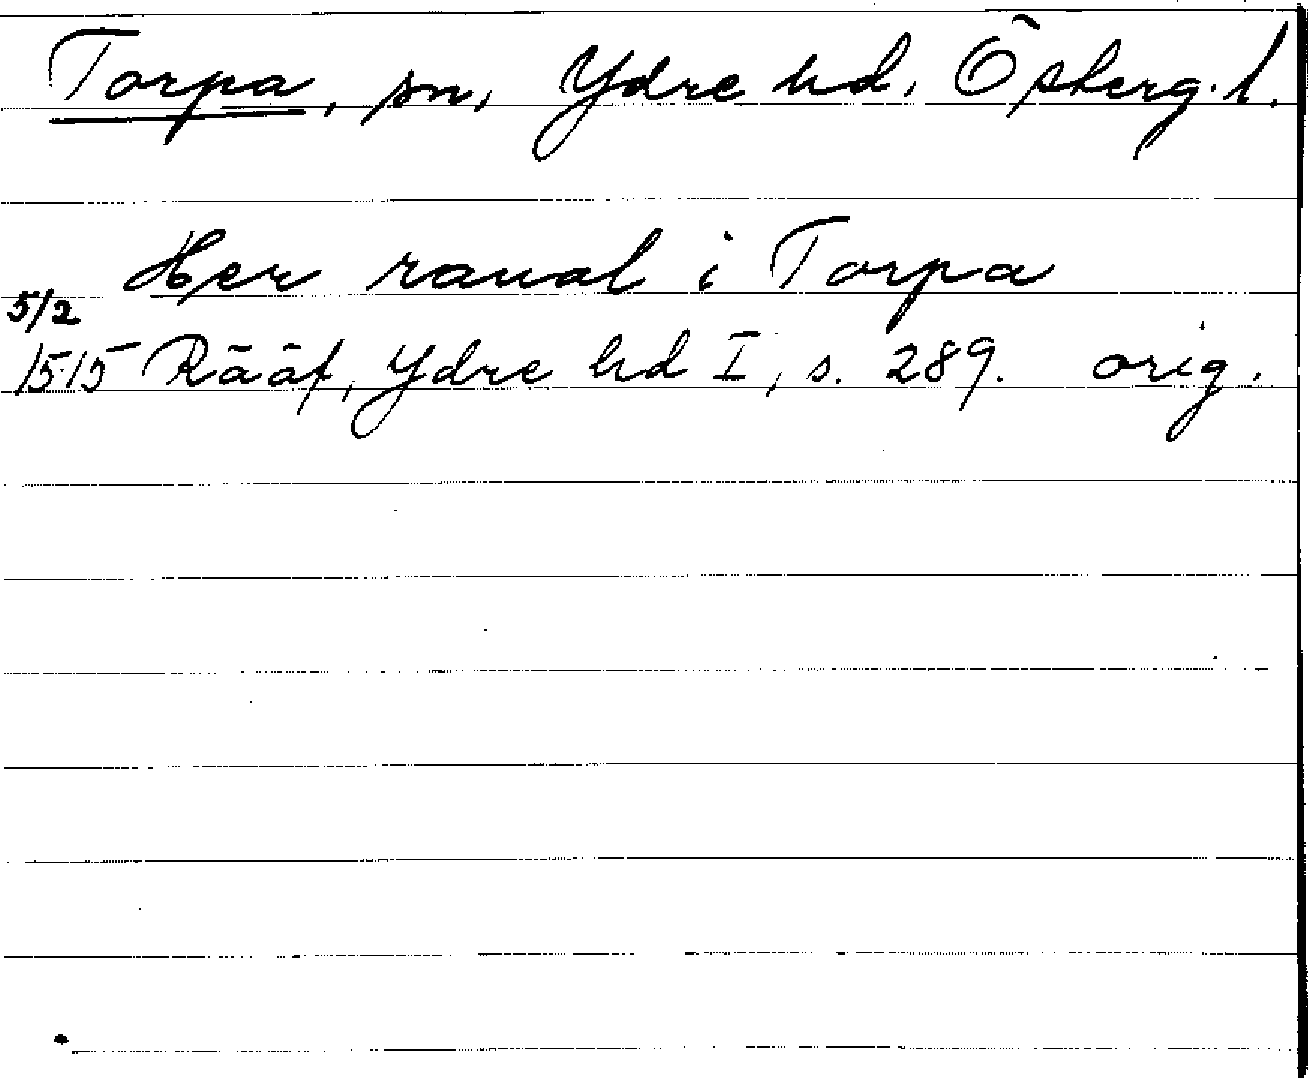 Torpa, sn, Ydre hd, Österg. l.
Her raual i Torpa
5/2
1515 Rääf, Ydre hd I, s. 289. orig.